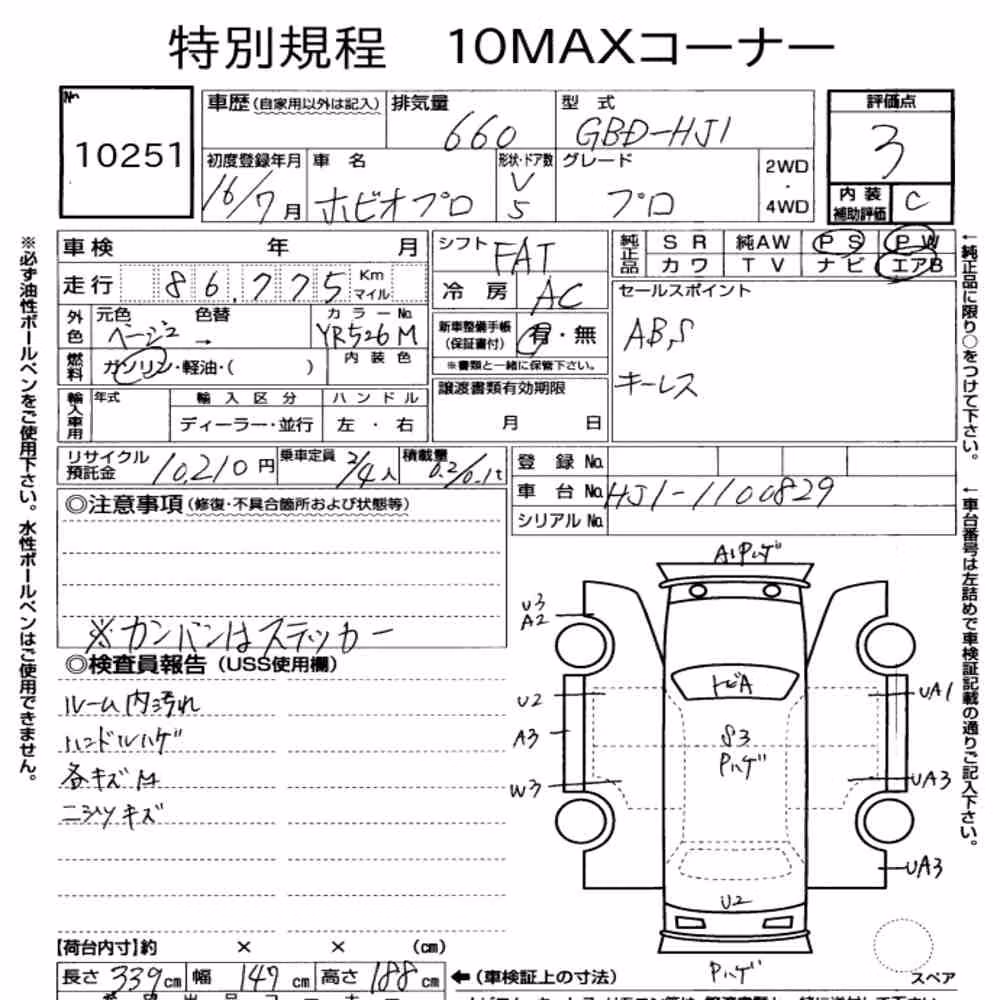 特別規程 10MAXコーナー
№ 10251
車歴(自家用以外は記入) 排気量 660 型式 GBD-HJ1
評価点 3
初度登録年月 16/7月 車名 ホビオプロ 形状・ドア数 V 5 グレード プロ 2WD・4WD
内装補助評価 C
車検 年 月
走行 86,775 Km マイル
外色 元色 ベージュ 色替 → カラーNo. YR526M
内装色
燃料 ガソリン・軽油・( )
輸入車用 年式 輸入区分 ハンドル
ディーラー・並行 左・右
シフト FAT
冷房 AC
新車整備手帳(保証書付) 有・無
※書類と一緒に保管下さい。
譲渡書類有効期限
月 日
純正品 SR 純AW PS PW
カワ TV ナビ エアB
セールスポイント
ABS
キーレス
リサイクル預託金 10,210円 乗車定員 2/4人 積載量 0.2/0.1t
登録No.
車台No. HJ1-1100829
シリアルNo.
◎注意事項(修復・不具合箇所および状態等)
※カンバンはステッカー
◎検査員報告(USS使用欄)
ルーム内汚れ
ハンドルハゲ
各キズ
ニシツキズ
【荷台内寸】約 × × (cm)
長さ 339cm 幅 147cm 高さ 188cm
←(車検証上の寸法)
※必ず油性ボールペンをご使用下さい。水性ボールペンはご使用できません。
←純正品に限り○をつけて下さい。
←車台番号は左詰めで車検証記載の通りご記入下さい。
A1 Pハゲ
U3
A2
U2
A3
W3
トビA
S3
Pハゲ
UA1
UA3
UA3
U2
Pハゲ
スペア